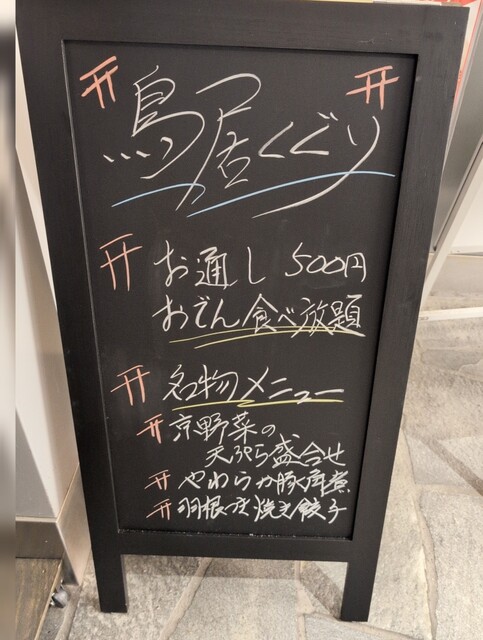 鳥居くぐり
お通し 500円
おでん食べ放題
名物メニュー
京野菜の
天ぷら盛合せ
やわらか豚角煮
羽根付焼き餃子